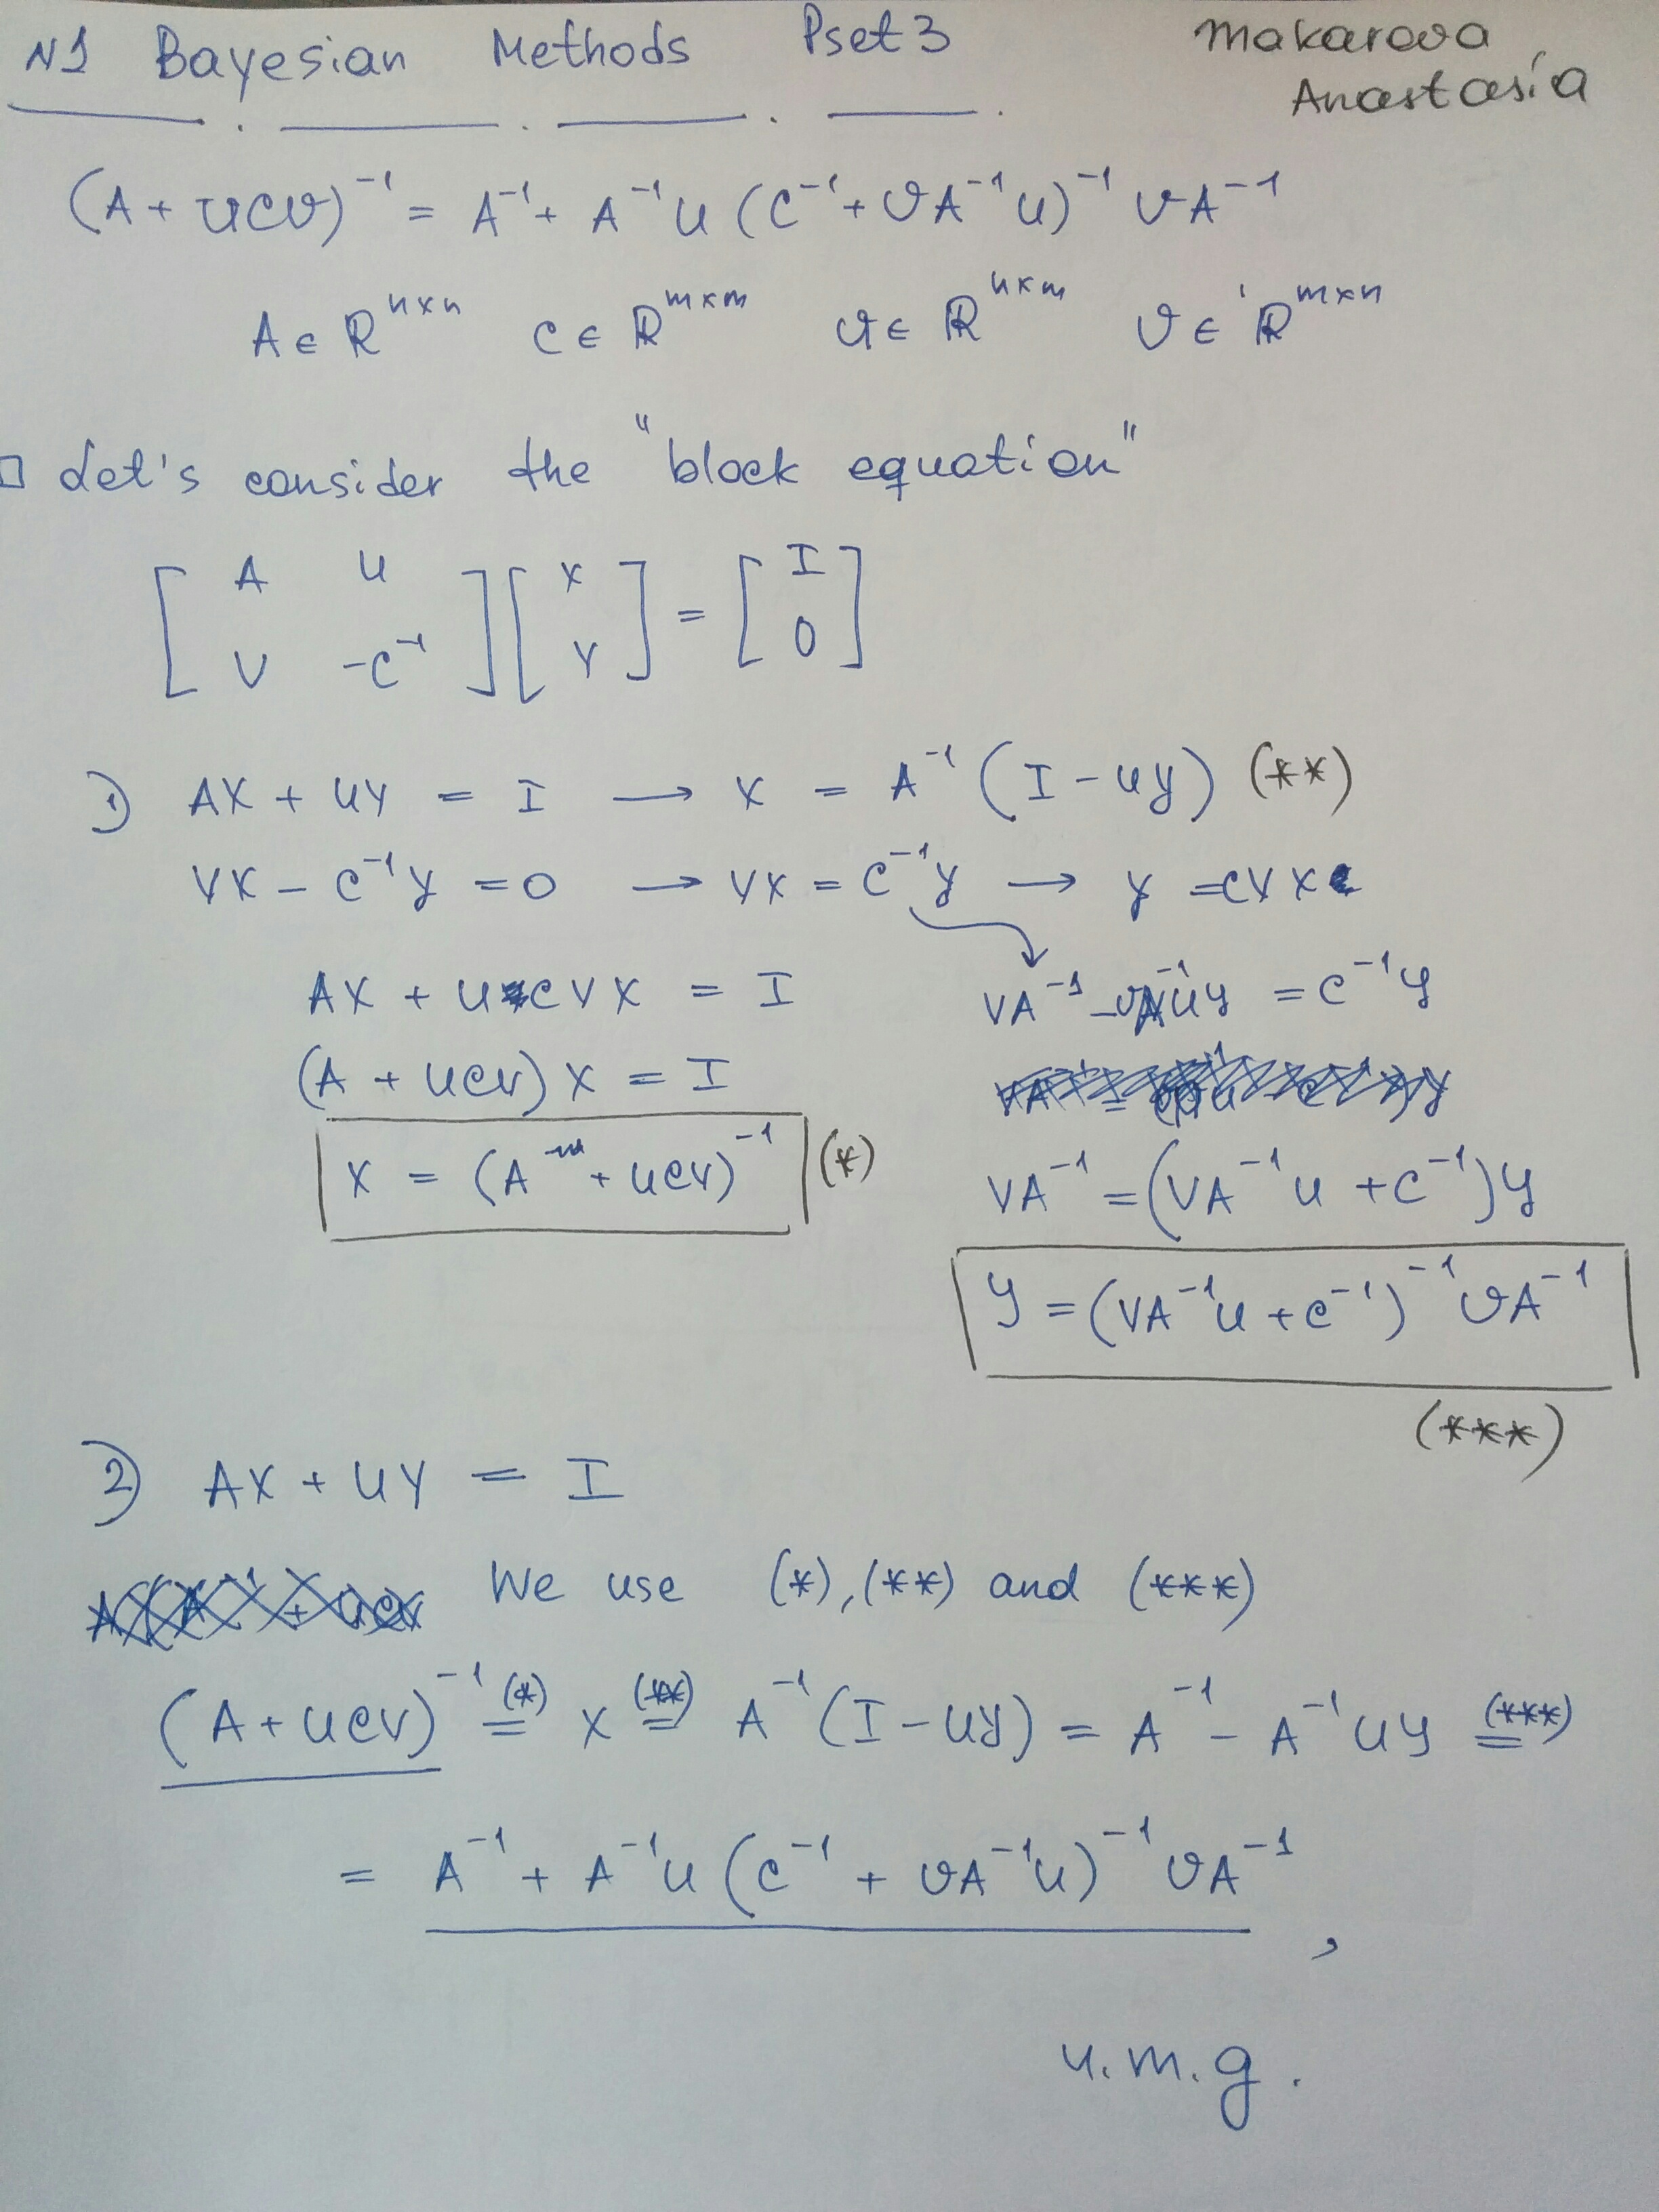 N1 Bayesian Methods Pset 3 Makarova Anastasia
(A + UCV)⁻¹ = A⁻¹ + A⁻¹U (C⁻¹ + VA⁻¹U)⁻¹ VA⁻¹
A ∈ ℝⁿˣⁿ C ∈ ℝᵐˣᵐ U ∈ ℝⁿˣᵐ V ∈ ℝᵐˣⁿ
□ Let's consider the "block equation"
[ A U ; V -C⁻¹ ] [ X ; Y ] = [ I ; 0 ]
1) AX + UY = I → X = A⁻¹ (I - UY) (**)
VX - C⁻¹Y = 0 → VX = C⁻¹Y → Y = CVX
AX + UCVX = I
(A + UCV) X = I
X = (A + UCV)⁻¹ (*)
VA⁻¹ - VA⁻¹UY = C⁻¹Y
VA⁻¹ = (VA⁻¹U + C⁻¹)Y
Y = (VA⁻¹U + C⁻¹)⁻¹ VA⁻¹
(***)
2) AX + UY = I
We use (*), (**) and (***)
(A + UCV)⁻¹ =(*) X =(**) A⁻¹ (I - UY) = A⁻¹ - A⁻¹UY =(***)
= A⁻¹ + A⁻¹U (C⁻¹ + VA⁻¹U)⁻¹ VA⁻¹ ,
ч.т.д.